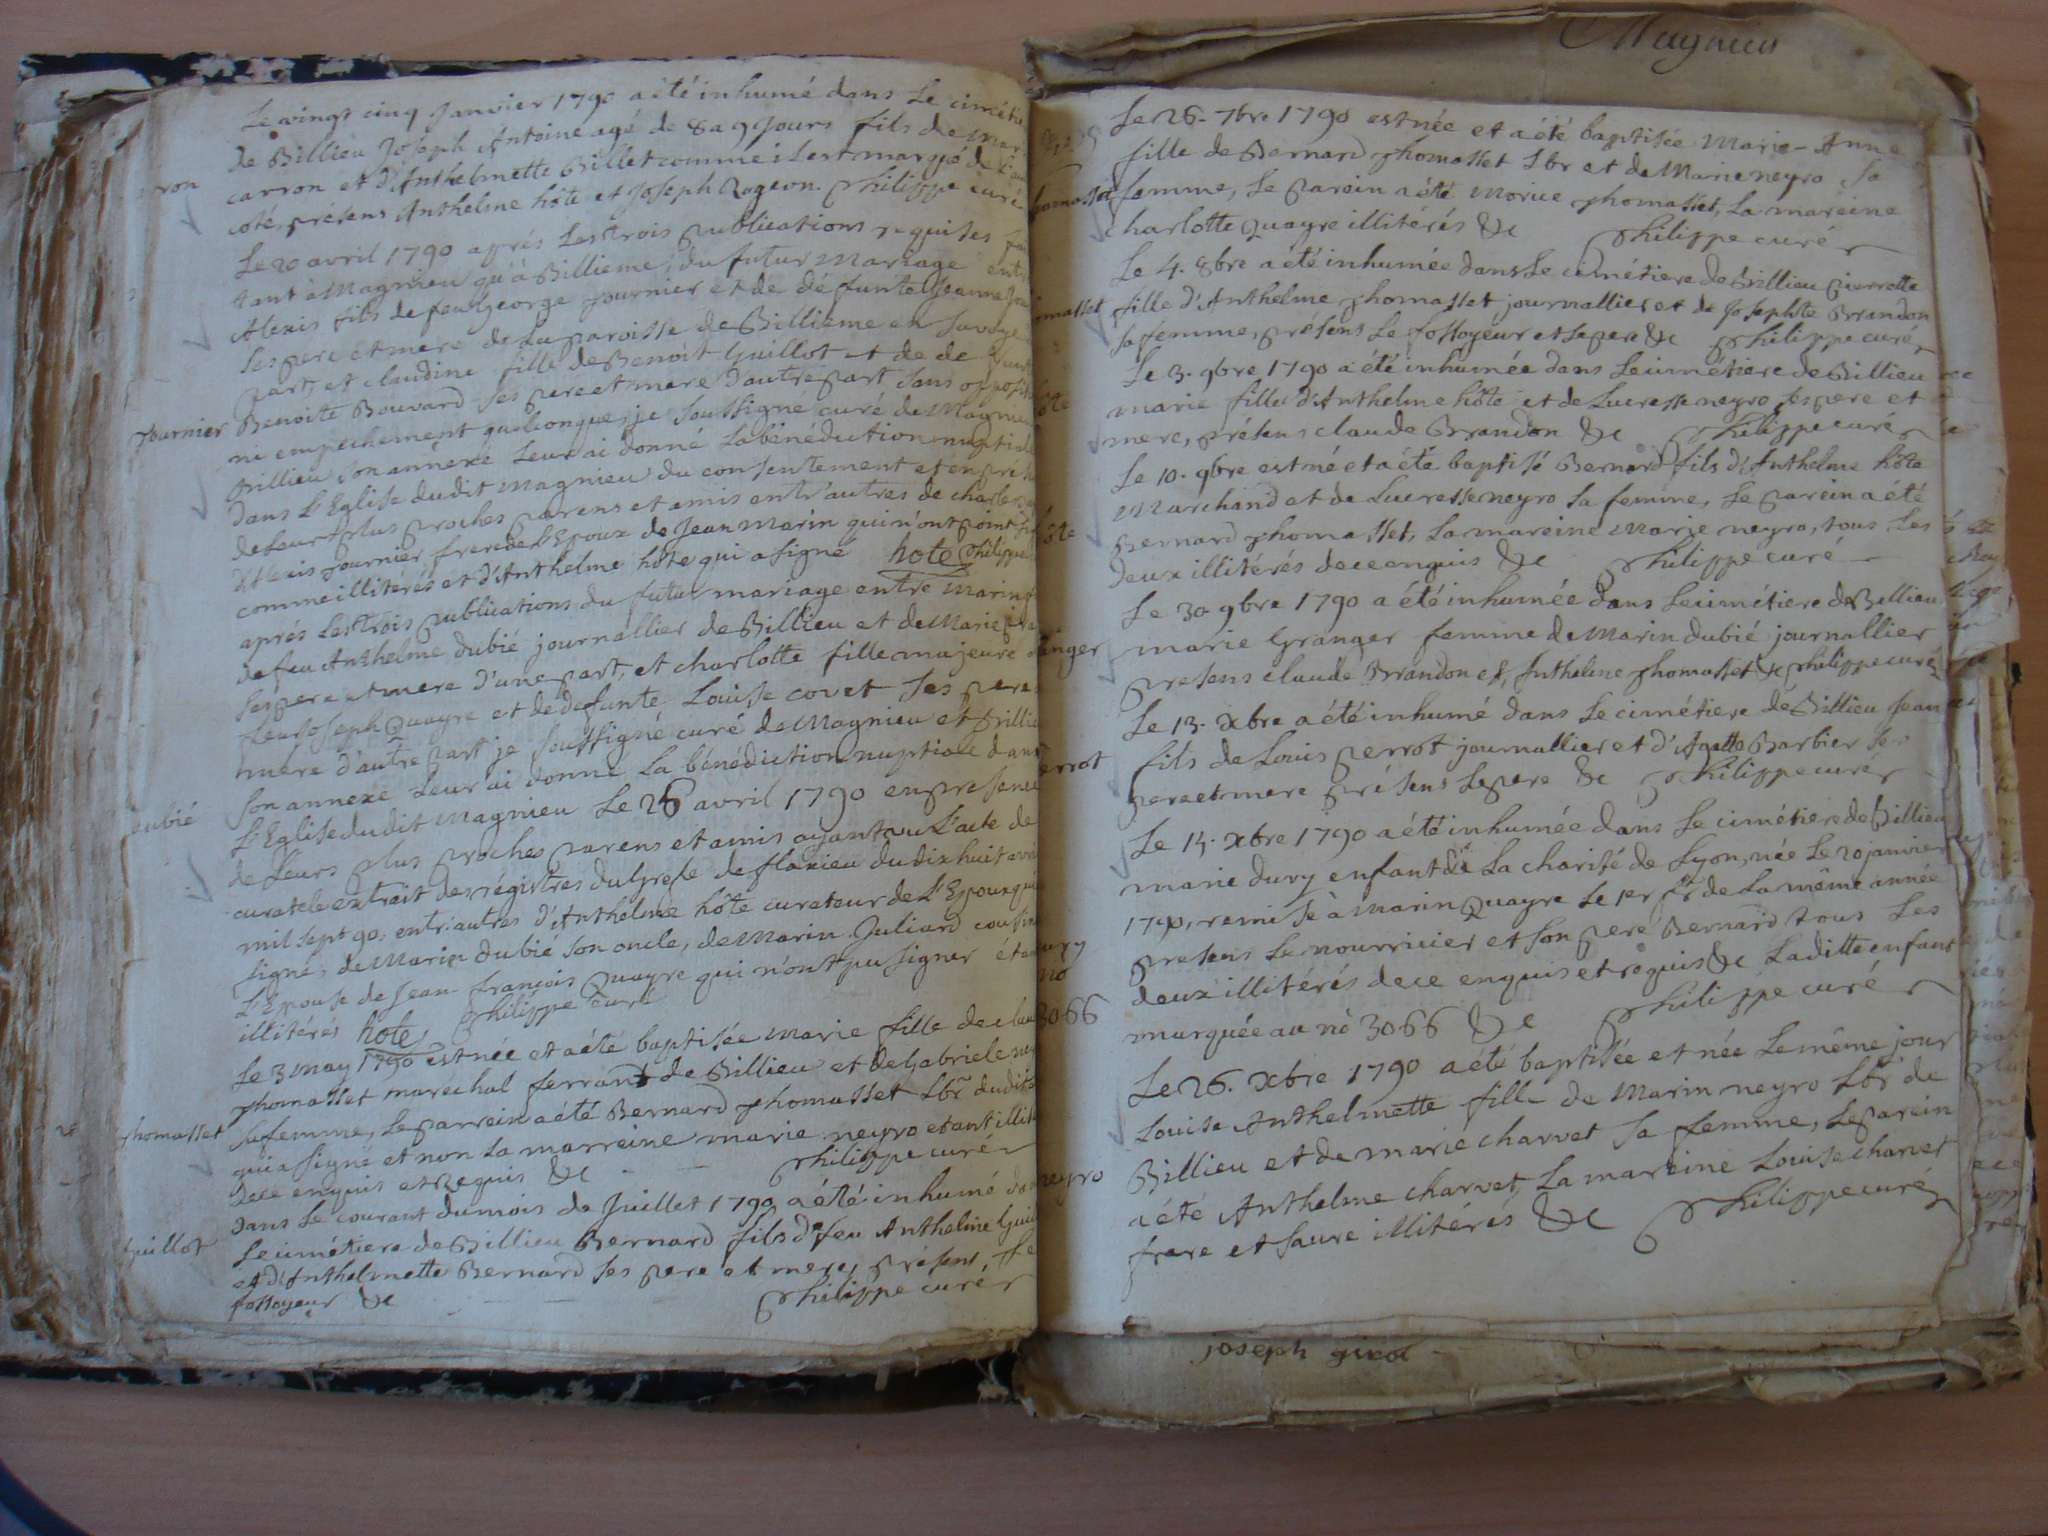 Le vingt cinq Janvier 1790 a été inhumé dans Le cimétie
de Billieu Joseph Antoine agé de 8 a 9 Jours fils de Mar
ron
carron et d'Anthelmette Billet comme il est marqué de L'au
coté, présens Anthelme hôte et Joseph Rogeon. Philippe curé
Le 20 avril 1790 aprés Les trois publications requises fai
tant à Magnieu qu'à Billieme, du futur Mariage entre
Alexis fils de feu George fournier et de défunte Jeanne
Ses pere et mere de La paroisse de Billieme en Savoye
part, et claudine fille de Benoit Guillot et de de funte
Benoite Bouvard Ses pere et mere d'autre part Sans opposit
fournier
ni empechement quelconque, je Soussigné curé de Magnieu
Billieu Son annéxe Leur ai donné La bénédiction nuptiale
dans L'Eglise dudit Magnieu du consentement et en prése
de Leurs plus proches parens et amis entr'autres de charles
d'Alexis fournier frere de L'Epoux de Jean Marin qui n'ont point
comme illitérés et d'Anthelme hôte qui a signé hote Philippe
aprés Les trois publications du futur mariage entre Marin
de feu Anthelme dubié journallier de Billieu et de Marie
Ses pere et mere d'une part, et charlotte fille majeure
feu Joseph Quayre et de defunte Louise covet Ses pere
mere d'autre part je Soussigné curé de Magnieu et Billieu
Son annexe Leur ai donné La bénédiction nuptiale dans
dubié
L'Eglise dudit Magnieu Le 26 avril 1790 en presence
de Leurs plus proches parens et amis ayant vu L'acte de
curatele extrait des régistres du Grefe de flaxieu du dix huit avri
mil sept 90, entr'autres d'Anthelme hôte curateur de L'Epoux qui
signé, de Marin dubié Son oncle, de Marin Juliard cousin
L'Epouse de Jean françois Quayre qui n'ont pu Signer étan
illitérés hote Philippe curé
Le 3 may 1790 est née et a été baptisée Marie fille de clau
Thomasset maréchal ferrant de Billieu et de Gabriele ney
Thomasset
Sa femme, Le parrein a été Bernard Thomasset Lbr dudit
qui a signé et non La marreine marie neyro etant illit
de ce enquis et Requis &c Philippe curé
Dans Le courant du mois de Juillet 1790 a été inhumé da
Guillot
Le cimétiere de Billieu Bernard fils d'feu Anthelme Guil
et d'Anthelmette Bernard Ses pere et mere, présent, Le
fossoyeur &c Philippe curé
Magnieu
Le 26. 7bre 1790 est née et a été baptisée Marie-Anne
fille de Bernard Thomasset Lbr et de Marie neyro Sa
homasset
femme, Le parein a été Morice Thomasset, La mareine
charlotte Quayre illitérés &c Philippe curé
Le 4. 8bre a été inhumée dans Le cimétiere de Billieu Pierrette
omasset
fille d'Anthelme Thomasset journallier et de Josephte Brandon
Sa femme, présens Le fossoyeur et Le pere &c Philippe curé
Le 3. 9bre 1790 a été inhumée dans Le cimétiere de Billieu
hôte
marie fille d'Anthelme hôte et de Lucresse neyro Ses pere et
mere, présens claude Brandon &c Philippe curé
Le 10. 9bre est né et a été baptisé Bernard fils d'Anthelme hôte
Marchand et de Lucresse neyro Sa femme, Le parein a été
hôte
Bernard Thomasset, La mareine Marie neyro, tous Les
deux illitérés de ce enquis &c Philippe curé
Le 30 9bre 1790 a été inhumée dans Le cimétiere de Billieu
anger
marie Granger femme de Marin dubié journallier
presens claude Brandon et, Anthelme Thomasset &c Philippe curé
Le 13. xbre a été inhumé dans Le cimétiere de Billieu Jean
errot
fils de Louis perrot journallier et d'Agatte Barbier Ses
pere et mere présens Le pere &c Philippe curé
Le 14. xbre 1790 a été inhumée dans Le cimétiere de Billieu
marie Dury enfant de La charité de Lyon, née Le 20 janvier
1790, remise à Marin Quayre Le 1er fr de La même année
ury
presens Le nourricier et Son pere Bernard tous Les
no
deux illitérés de ce enquis et requis &c Laditte enfant
3066
marquée au nò 3066 &c Philippe curé
Le 26. xbre 1790 a été baptisée et née Le même jour
Louise Anthelmette fille de Marin neyro Lbr de
neyro
Billieu et de marie charvet Sa femme, Le parein
a été Anthelme charvet, La mareine Louise charvet
frere et Saure illitérés &c Philippe curé
joseph girod